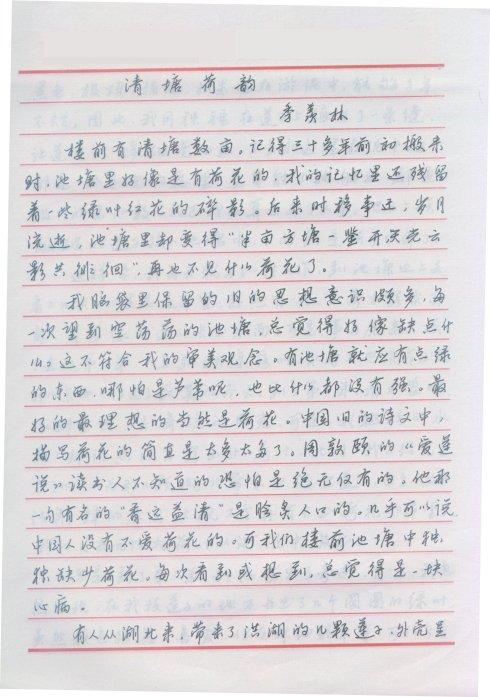 清塘荷韵
季羡林
楼前有清塘数亩。记得三十多年前初搬来
时，池塘里好像是有荷花的，我的记忆里还残留
着一些绿叶红花的碎影。后来时移事迁，岁月
流逝，池塘里却变得“半亩方塘一鉴开，天光云
影共徘徊”，再也不见什么荷花了。
我脑袋里保留的旧的思想意识颇多，每
一次望到空荡荡的池塘，总觉得好像缺点什
么。这不符合我的审美观念。有池塘就应有点绿
的东西，哪怕是芦苇呢，也比什么都没有强。最
好的最理想的当然是荷花。中国旧的诗文中，
描写荷花的简直是太多太多了。周敦颐的《爱莲
说》读书人不知道的恐怕是绝无仅有的。他那
一句有名的“香远益清”是脍炙人口的。几乎可以说，
中国人没有不爱荷花的。可我们楼前池塘中独
独缺少荷花。每次看到或想到，总觉得是一块
心病。
有人从湖北来，带来了洪湖的几颗莲子，外壳呈